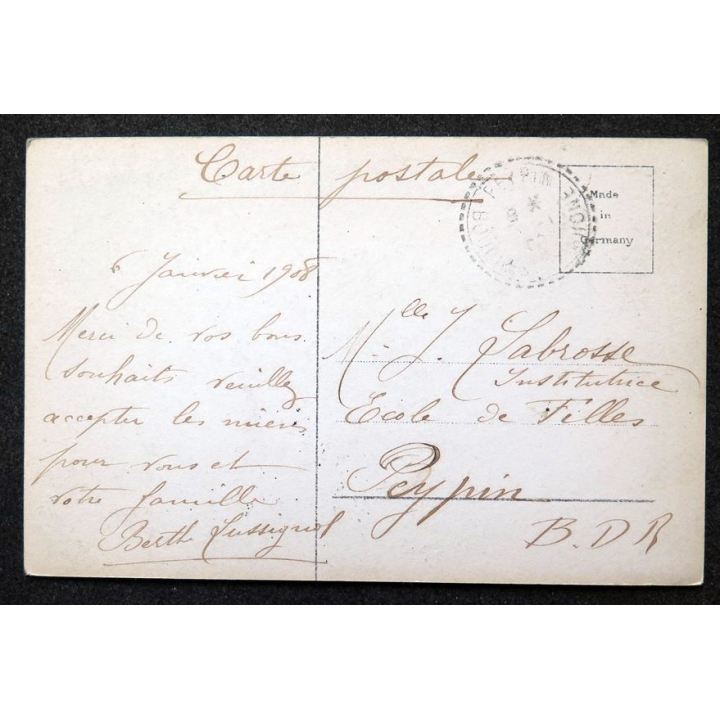 Carte postale
6 Janvier 1908
Merci de vos bons
souhaits veuillez
accepter les miens
pour vous et
votre famille
Berthe Lussignol
Made
in
Germany
Mlle J. Labrosse
Institutrice
Ecole de Filles
Peypin
B.D R